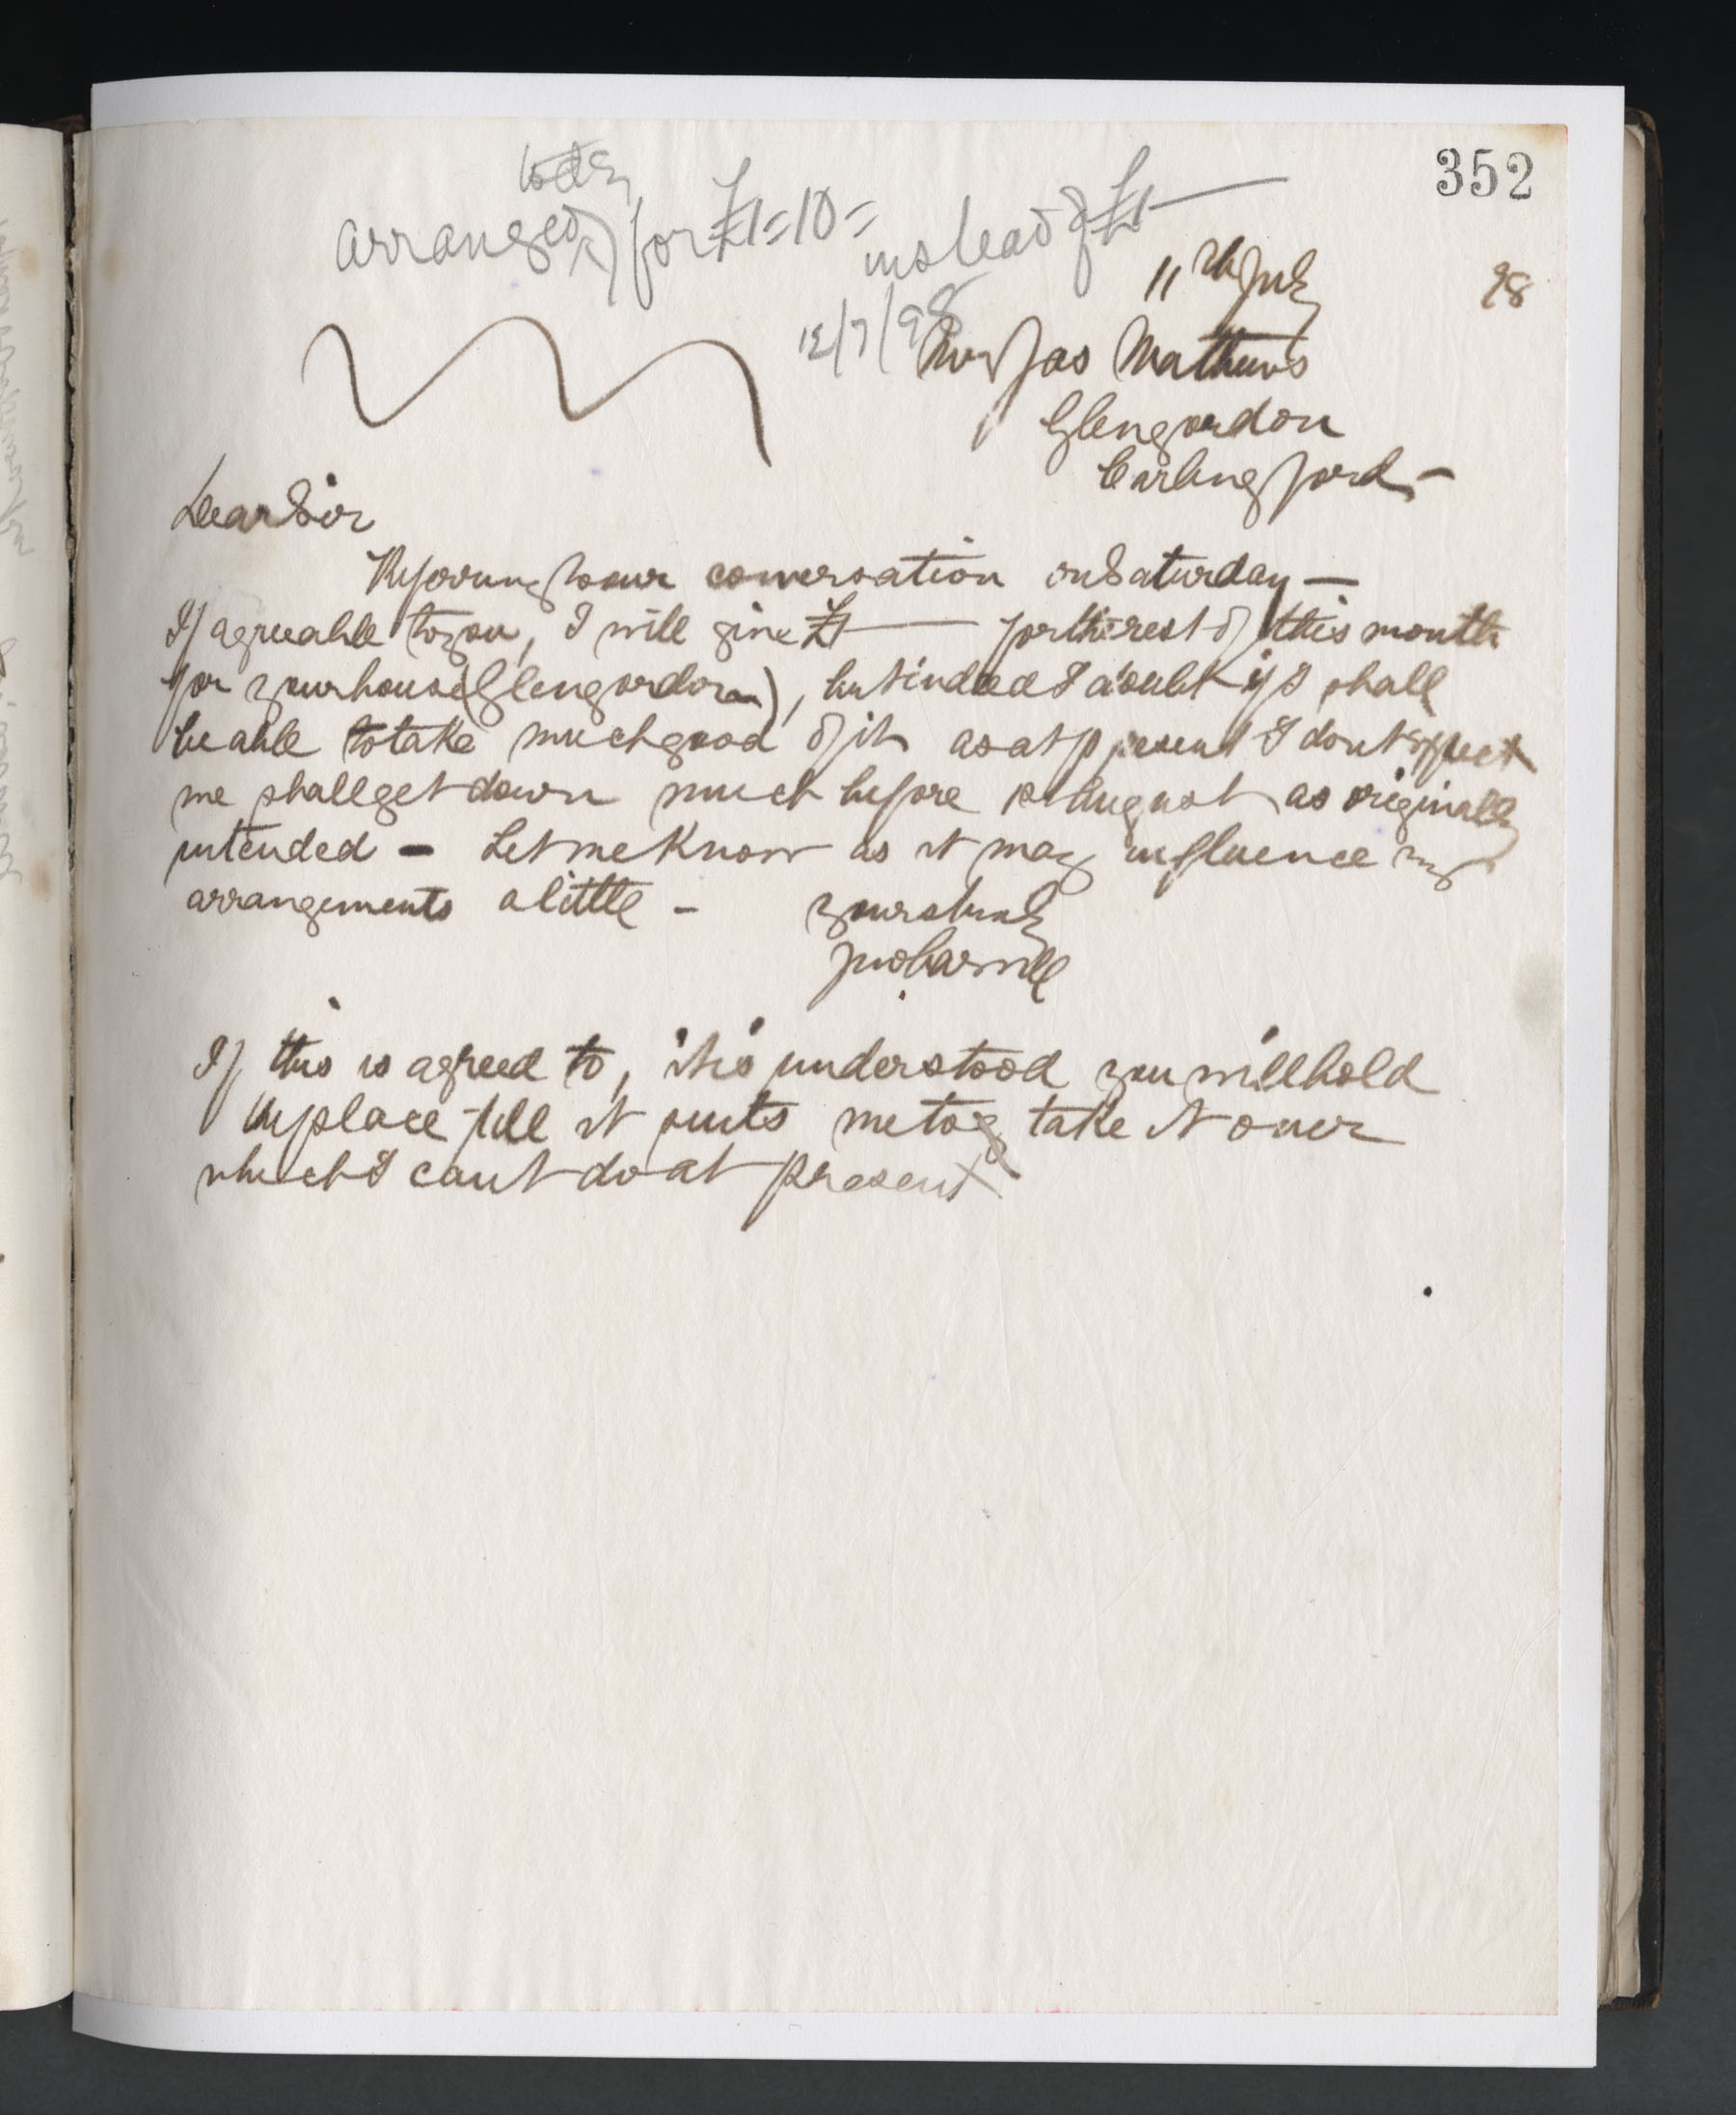 352
today
arranged for £1=10= instead of £1
12/7/98
11th July 98
Mr Jas Mathews
Glengordon
Carlingford -
Dear Sir
Referring to our conversation on Saturday —
If agreeable to you, I will give £1 — for the rest of this month
for your house (Glengordon), but indeed I doubt if I shall
be able to take much good of it as at present I dont expect
we shall get down much before 1st August as originally
intended - Let me know as it may influence my
arrangements a little -
yours truly
Jno Carvill
If this is agreed to, it is understood you will hold
the place till it suits me to take it over
which I cant do at present